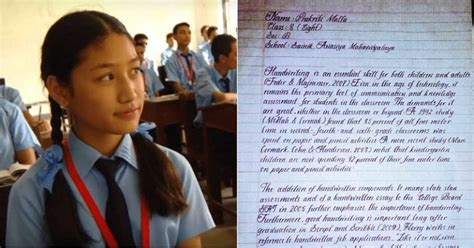 Name : Prakriti Malla
Class : 8 (Eight)
Sec : B
School : Sainik Awasiya Mahavidyalaya
Handwriting is an essential skill for both children and adults
(Feder & Majnemer, 2007). Even in the age of technology, it
remains the primary tool of communication and knowledge
assessment for students in the classroom. The demands for it
are great, whether in the classroom or beyond. A 1992 study
(McHale & Cermak) found that 85 percent of all fine motor
time in second- fourth- and sixth-grade classrooms was
spent on paper and pencil activities. A more recent study (Marr,
Cermak, Cohn & Henderson, 2003) noted that kindergarten
children are now spending 42 percent of their fine motor time
on paper and pencil activities.
The addition of handwritten components to many state
assessments and of a handwritten essay to the College Board
SAT in 2005 further emphasises the importance of handwriting.
Furthermore, good handwriting is important long after
graduation.
reference to handwritten job applications.